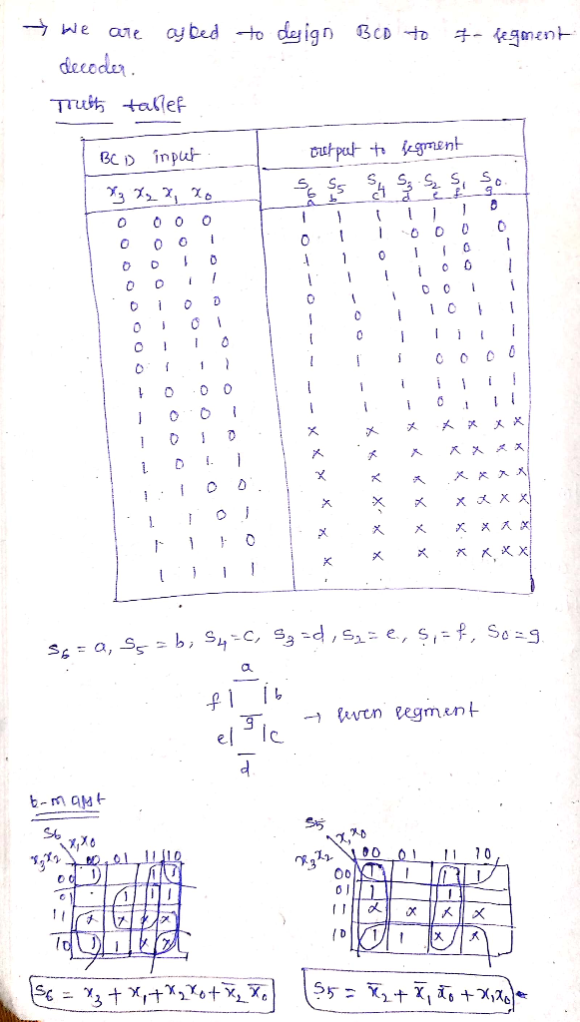 → We are asked to design BCD to 7-segment
decoder.
Truth tables
BCD input output to segment
x₃ x₂ x₁ x₀ S₆ S₅ S₄ S₃ S₂ S₁ S₀
a b c d e f g
0 0 0 0 1 1 1 1 1 1 0
0 0 0 1 0 1 1 0 0 0 0
0 0 1 0 1 1 0 1 1 0 1
0 0 1 1 1 1 1 1 0 0 1
0 1 0 0 0 1 1 0 0 1 1
0 1 0 1 1 0 1 1 0 1 1
0 1 1 0 1 0 1 1 1 1 1
0 1 1 1 1 1 1 0 0 0 0
1 0 0 0 1 1 1 1 1 1 1
1 0 0 1 1 1 1 0 1 1
1 0 1 0 x x x x x x x
1 0 1 1 x x x x x x x
1 1 0 0 x x x x x x x
1 1 0 1 x x x x x x x
1 1 1 0 x x x x x x x
1 1 1 1 x x x x x x x
S₆ = a, S₅ = b, S₄ = c, S₃ = d, S₂ = e, S₁ = f, S₀ = g
a
f | | b
g → seven segment
e | | c
d
S₆ x₁x₀
x₃x₂ 00 01 11 10
00 1 1 1
01 1 1 1
11 x x x x
10 1 1 x x
S₆ = x₃ + x₁ + x₂x₀ + x̅₂ x̅₀
S5 x₁x₀
x₃x₂ 00 01 11 10
00 1 1 1 1
01 1 1
11 x x x x
10 1 1 x x
S5 = x̅₂ + x̅₁ x̅₀ + x₁x₀